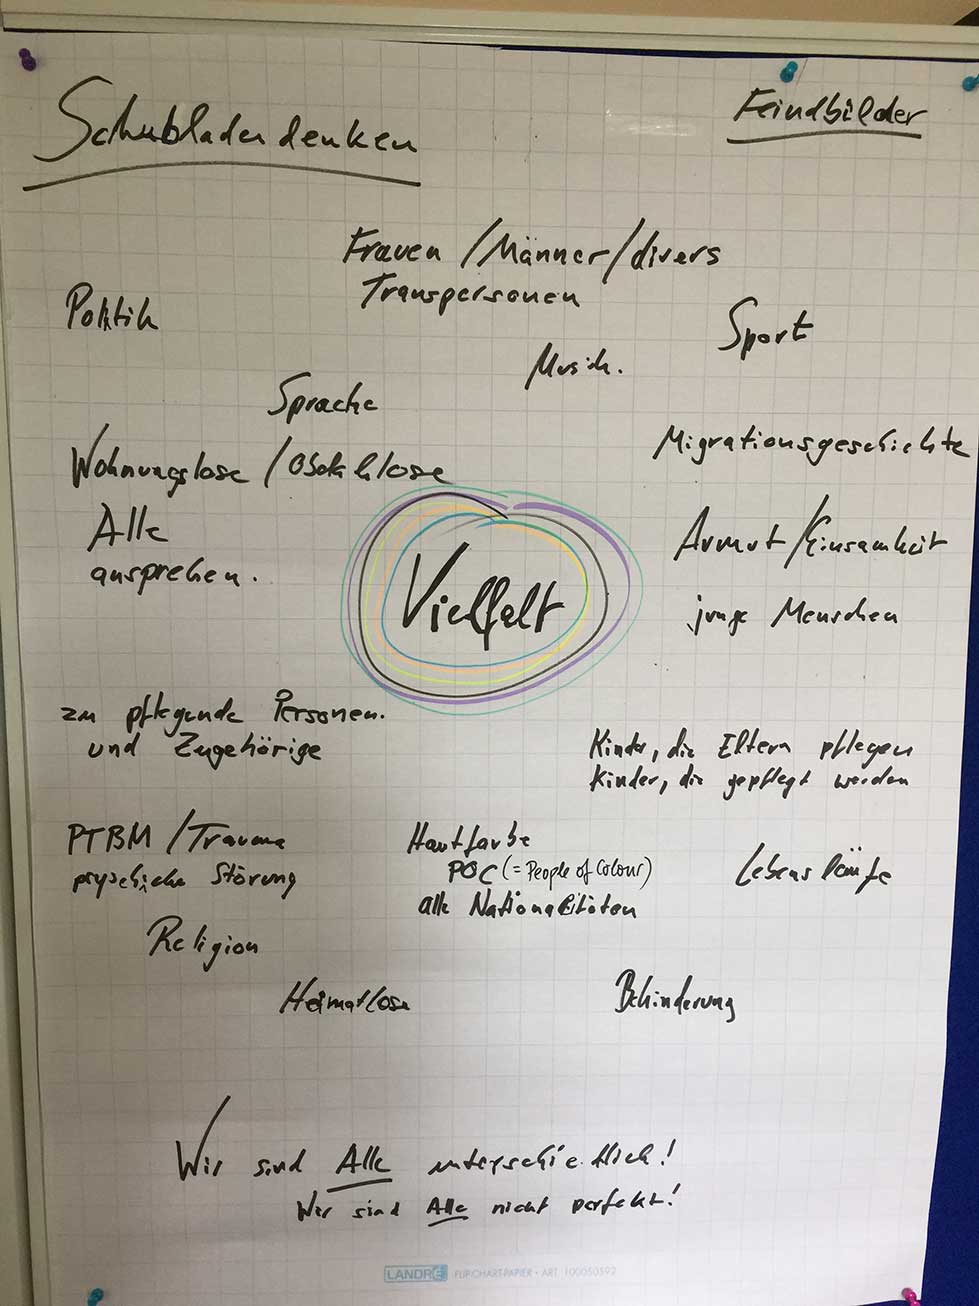 Schubladendenken
Feindbilder
Frauen / Männer / divers
Transpersonen
Politik
Sport
Musik.
Sprache
Migrationsgeschichte
Wohnungslose / Obdachlose
Alle
ansprechen.
Armut / Einsamkeit
Vielfalt
junge Menschen
zu pflegende Personen.
und Zugehörige
Kinder, die Eltern pflegen
Kinder, die gepflegt werden
PTBM / Trauma
psychische Störung
Hautfarbe
POC (= People of Colour)
alle Nationalitäten
Lebensläufe
Religion
Heimatlose
Behinderung
Wir sind Alle unterschiedlich!
Wir sind Alle nicht perfekt!
LANDRÉ FLIPCHART-PAPIER • ART. 100050592